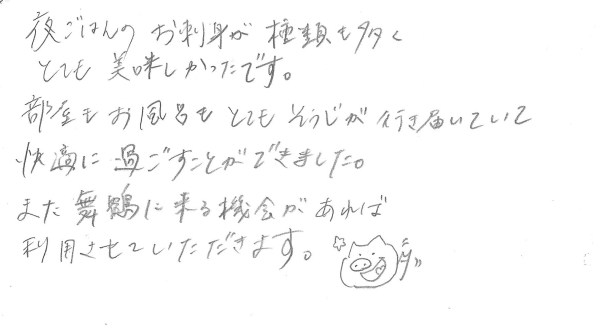 夜ごはんの お刺身が 種類も多く
とても 美味しかったです。
部屋も お風呂も とても そうじが 行き届いていて
快適に 過ごすことができました。
また 舞鶴に来る機会が あれば
利用させていただきます。